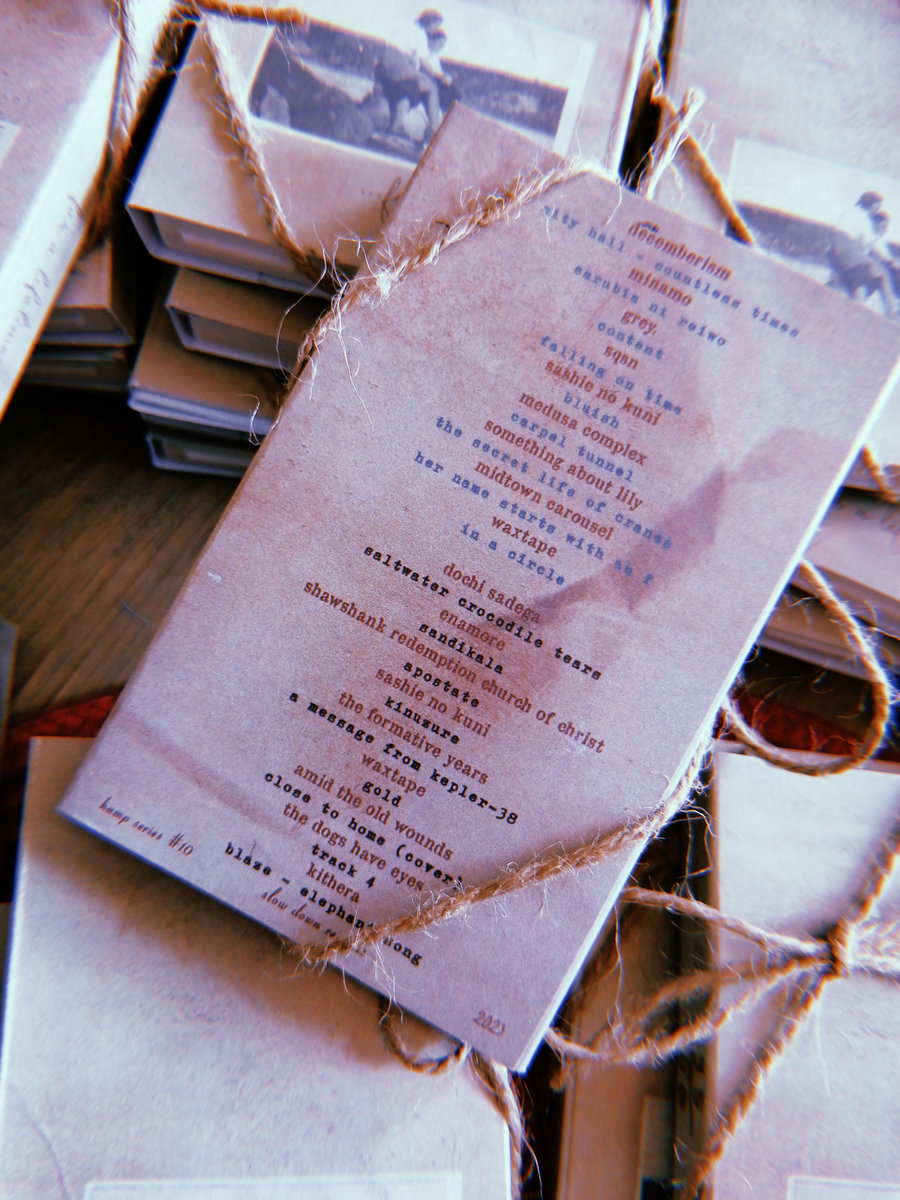 decemberism
city hall - countless times
minamo
sarubia ni reiwo
grey.
content
sqsn
falling on time
sashie no kuni
bluish
medusa complex
carpal tunnel
something about lily
the secret life of cranes
midtown carousel
her name starts with an f
waxtape
in a circle
dochi sadega
saltwater crocodile tears
enamore
sandikala
shawshank redemption church of christ
apostate
sashie no kuni
kinuzure
the formative years
a message from kepler-38
waxtape
gold
amid the old wounds
close to home (cover)
the dogs have eyes
track 4
kithera
blaze - elephant song
slow down
hump series #10
2023